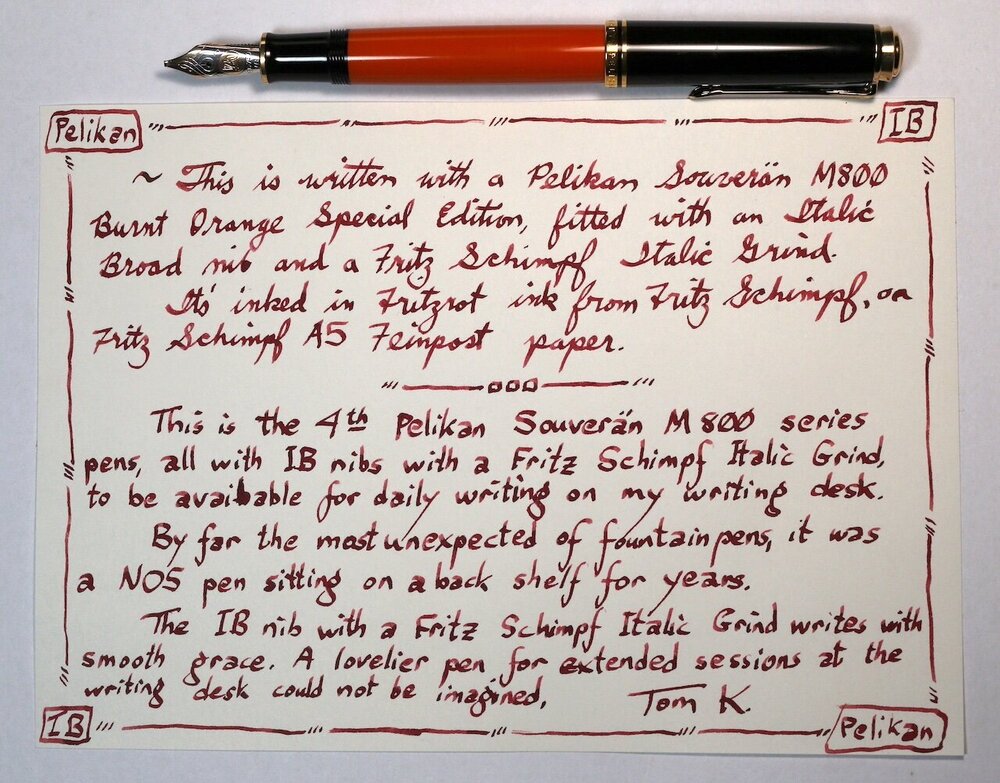 Pelikan
IB
~ This is written with a Pelikan Souverän M800
Burnt Orange Special Edition, fitted with an Italic
Broad nib and a Fritz Schimpf Italic Grind.
It's inked in Fritzrot ink from Fritz Schimpf, on
Fritz Schimpf A5 Feinpost paper.
This is the 4th Pelikan Souverän M800 series
pens, all with IB nibs with a Fritz Schimpf Italic Grind,
to be avaibable for daily writing on my writing desk.
By far the most unexpected of fountain pens, it was
a NOS pen sitting on a back shelf for years.
The IB nib with a Fritz Schimpf Italic Grind writes with
smooth grace. A lovelier pen for extended sessions at the
writing desk could not be imagined.
Tom K.
IB
Pelikan